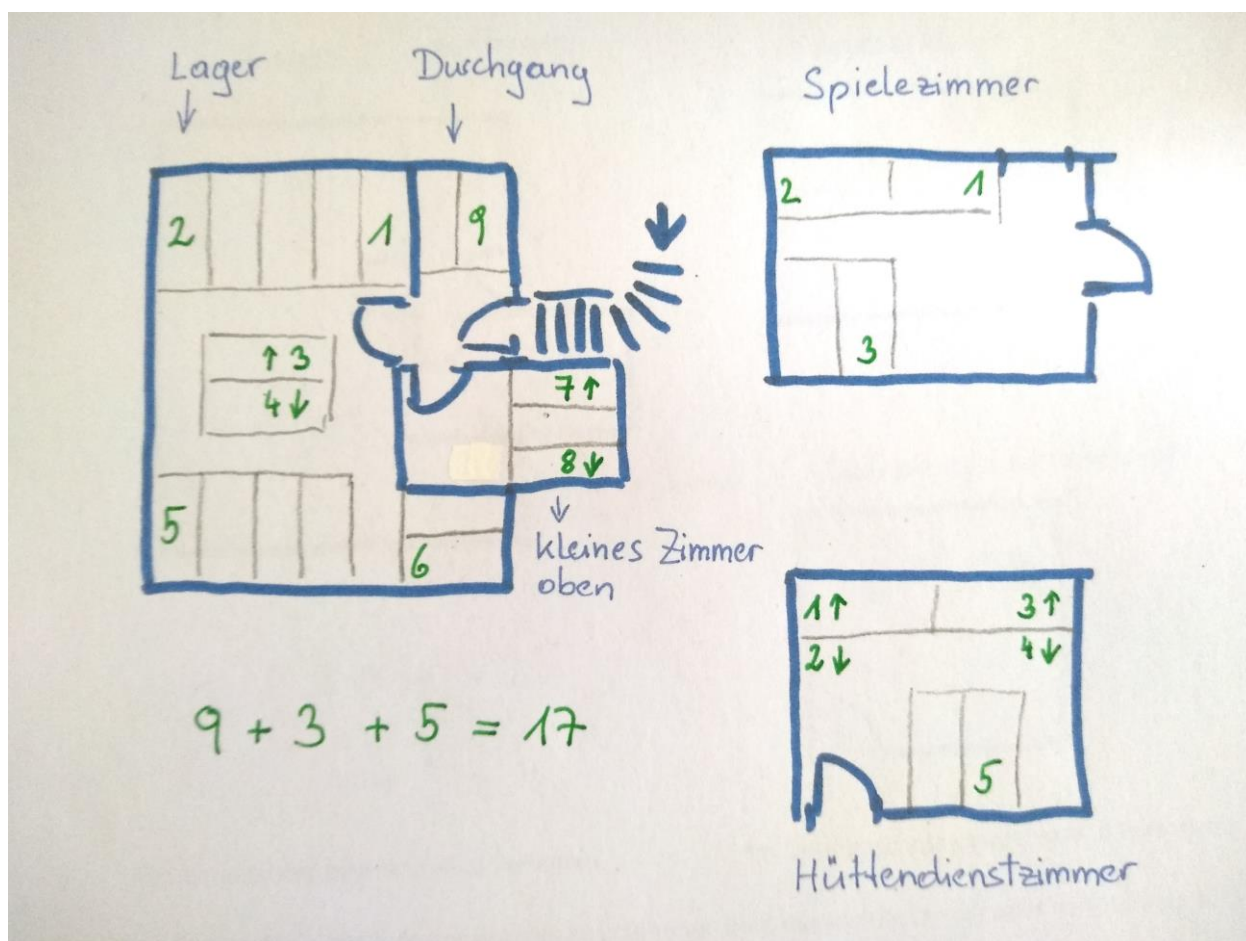 Lager
Durchgang
Spielezimmer
2 1 9
2 1
↑ 3
4 ↓
3
7 ↑
8 ↓
5
6
kleines Zimmer
oben
1 ↑ 3 ↑
2 ↓ 4 ↓
5
9 + 3 + 5 = 17
Hüttendienstzimmer